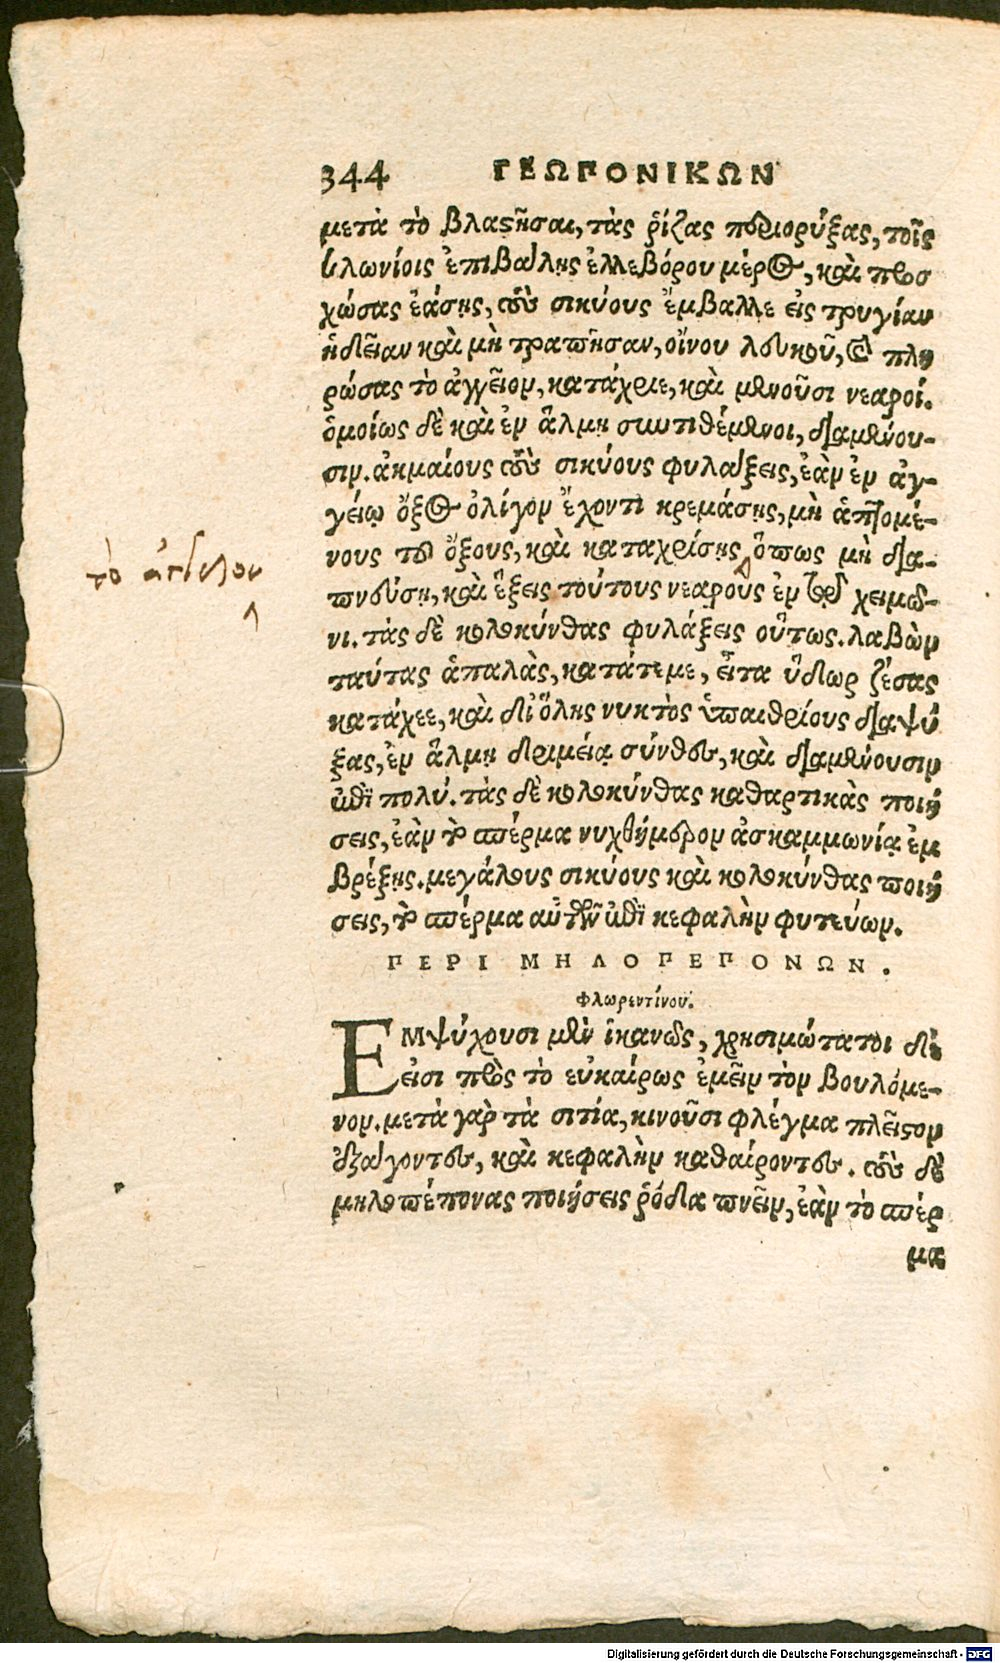 344 ΓΕΩΠΟΝΙΚΩΝ
μετὰ τὸ βλαστῆσαι, τὰς ῥίζας περιορύξας, τοῖς
ψλωνίοις ἐπιβάλῃς ἑλλεβόρου μέρος, καὶ προσ
χώσας ἐάσῃς, τοὺς σικύους ἔμβαλλε εἰς τρυγίαν
ἡδεῖαν καὶ μὴ τραπῆσαν, οἴνου λευκοῦ, καὶ πλη
ρώσας τὸ ἀγγεῖον, κατάχριε, καὶ μενοῦσι νεαροί.
ὁμοίως δὲ καὶ ἐν ἅλμῃ συντιθέμενοι, διαμένου-
σιν. ἀκμαίους τοὺς σικύους φυλάξεις, ἐὰν ἐν ἀγ-
γείῳ ὄξος ὀλίγον ἔχοντι κρεμάσῃς, μὴ ἁπτομέ-
νους τοῦ ὄξους, καὶ καταχρίσῃς ὅπως μὴ δια-
τὸ ἀγγεῖον
πνεύσῃ, καὶ ἕξεις τούτους νεαροὺς ἐν τῷ χειμῶ-
νι. τὰς δὲ κολοκύνθας φυλάξεις οὕτως. λαβὼν
ταύτας ἁπαλὰς, κατάτεμε, εἶτα ὕδωρ ζέσας
κατάχεε, καὶ δι' ὅλης νυκτὸς ὑπαιθρίους διαψύ
ξας, ἐν ἅλμῃ δριμείᾳ σύνθες, καὶ διαμένουσιν
ἐπὶ πολύ. τὰς δὲ κολοκύνθας καθαρτικὰς ποιή
σεις, ἐὰν τὸ σπέρμα νυχθήμερον ἀσκαμμωνίᾳ ἐμ
βρέξῃς. μεγάλους σικύους καὶ κολοκύνθας ποιή
σεις, τὸ σπέρμα αὐτῶν ἐπὶ κεφαλὴν φυτεύων.
ΠΕΡΙ ΜΗΛΟΠΕΠΟΝΩΝ.
Φλωρεντίνου.
ΕΜψύχουσι μὲν ἱκανῶς, χρησιμώτατοι δὲ
εἰσι πρὸς τὸ εὐκαίρως ἐμεῖν τὸν βουλόμε-
νον. μετὰ γὰρ τὰ σιτία, κινοῦσι φλέγμα πλεῖστον
ἐξάγοντες, καὶ κεφαλὴν καθαίροντες. τοὺς δὲ
μηλοπέπονας ποιήσεις ῥόδια πνεῖν, ἐὰν τὸ σπέρ
μα
Digitalisierung gefördert durch die Deutsche Forschungsgemeinschaft - DFG